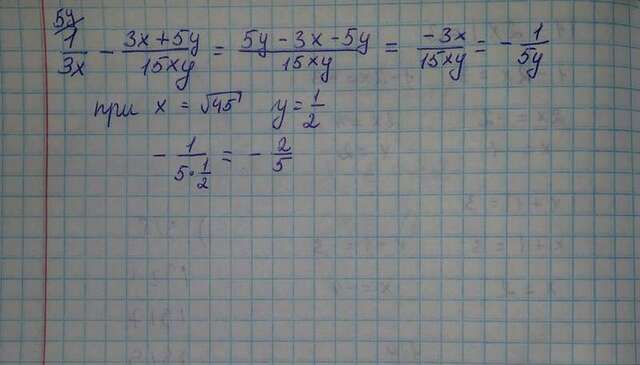 5y
1/3x - (3x+5y)/15xy = (5y-3x-5y)/15xy = -3x/15xy = -1/5y
при x = √45 y = 1/2
- 1/(5·1/2) = - 2/5